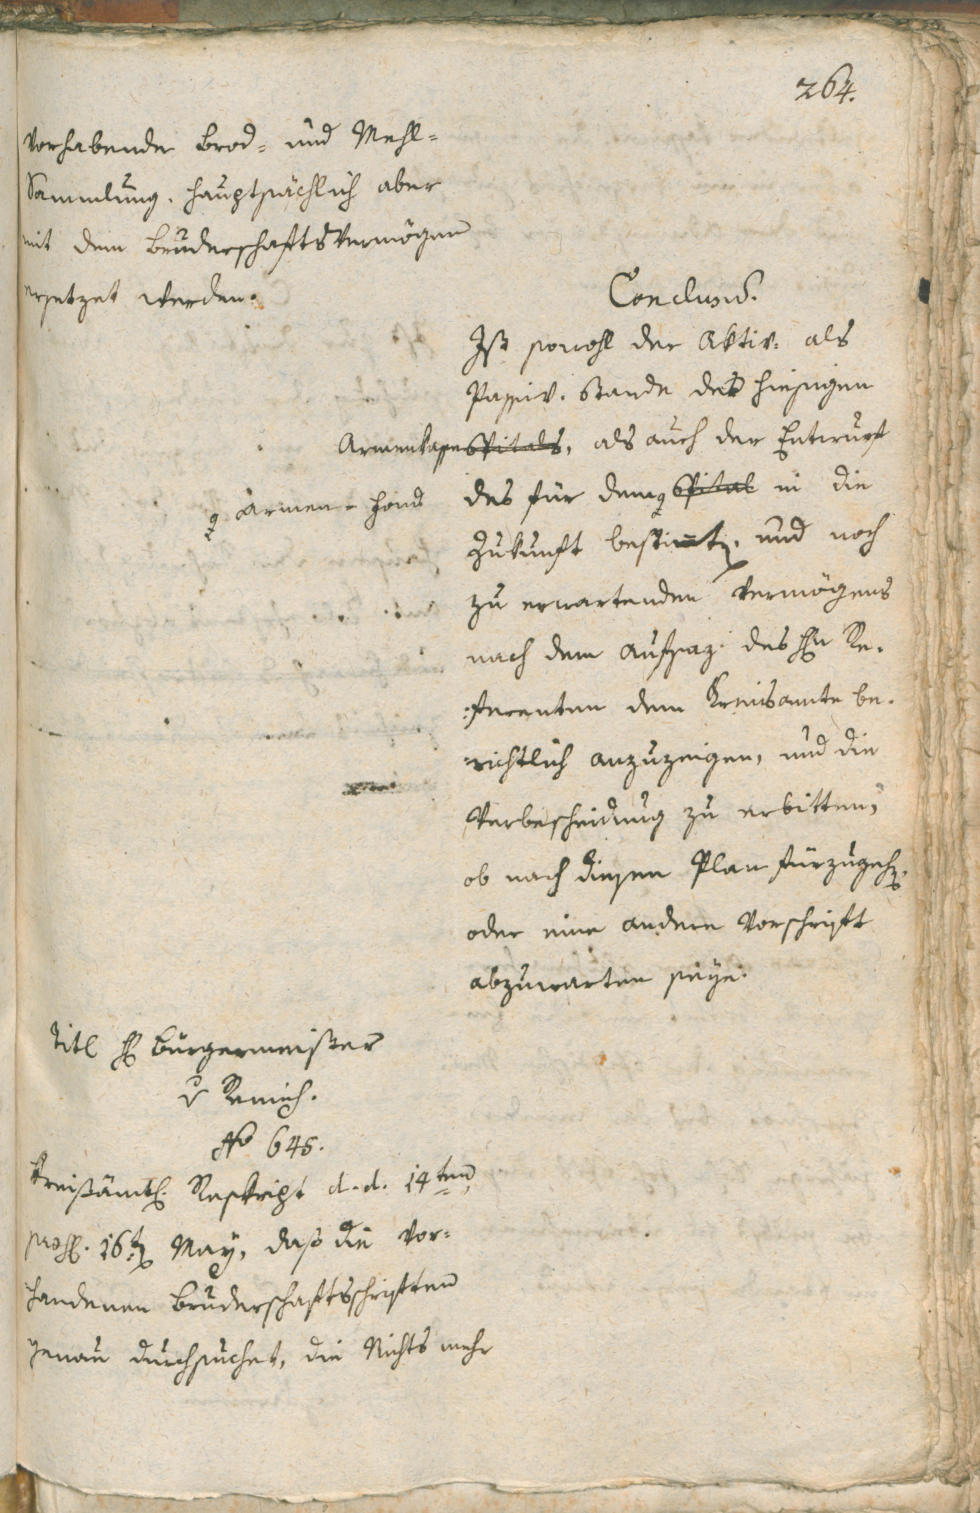 264.
vorhabende Brod- und Mehl-
Sammlung, hauptsächlich aber
mit dem Bruderschaftsvermögen
ersetzet werden.
Conclusũ.
Ist sowohl der Aktiv- als
Passiv-Stande des hiesigen
Armenhauses Spitals, als auch der Entwurf
des für dem Spital in die
Armen-Fond
Zukunft bestimten, und noch
zu erwartenden Vermögens
nach dem Aufsaz des Hn Re-
ferenten dem Kreisamte be-
richtlich anzuzeigen, und die
Verbescheidung zu erbitten,
ob nach diesem Plan fürzugehen,
oder eine andere Vorschrift
abzuwarten seÿe.
Titl H Bürgermeister
v Remich.
No 645.
Kreisämtl. Reskript d. d. 14ten
praes. 16ten Maÿ, daß die vor-
handenen Bruderschaftsschriften
genau durchsuchet, die Nichts mehr